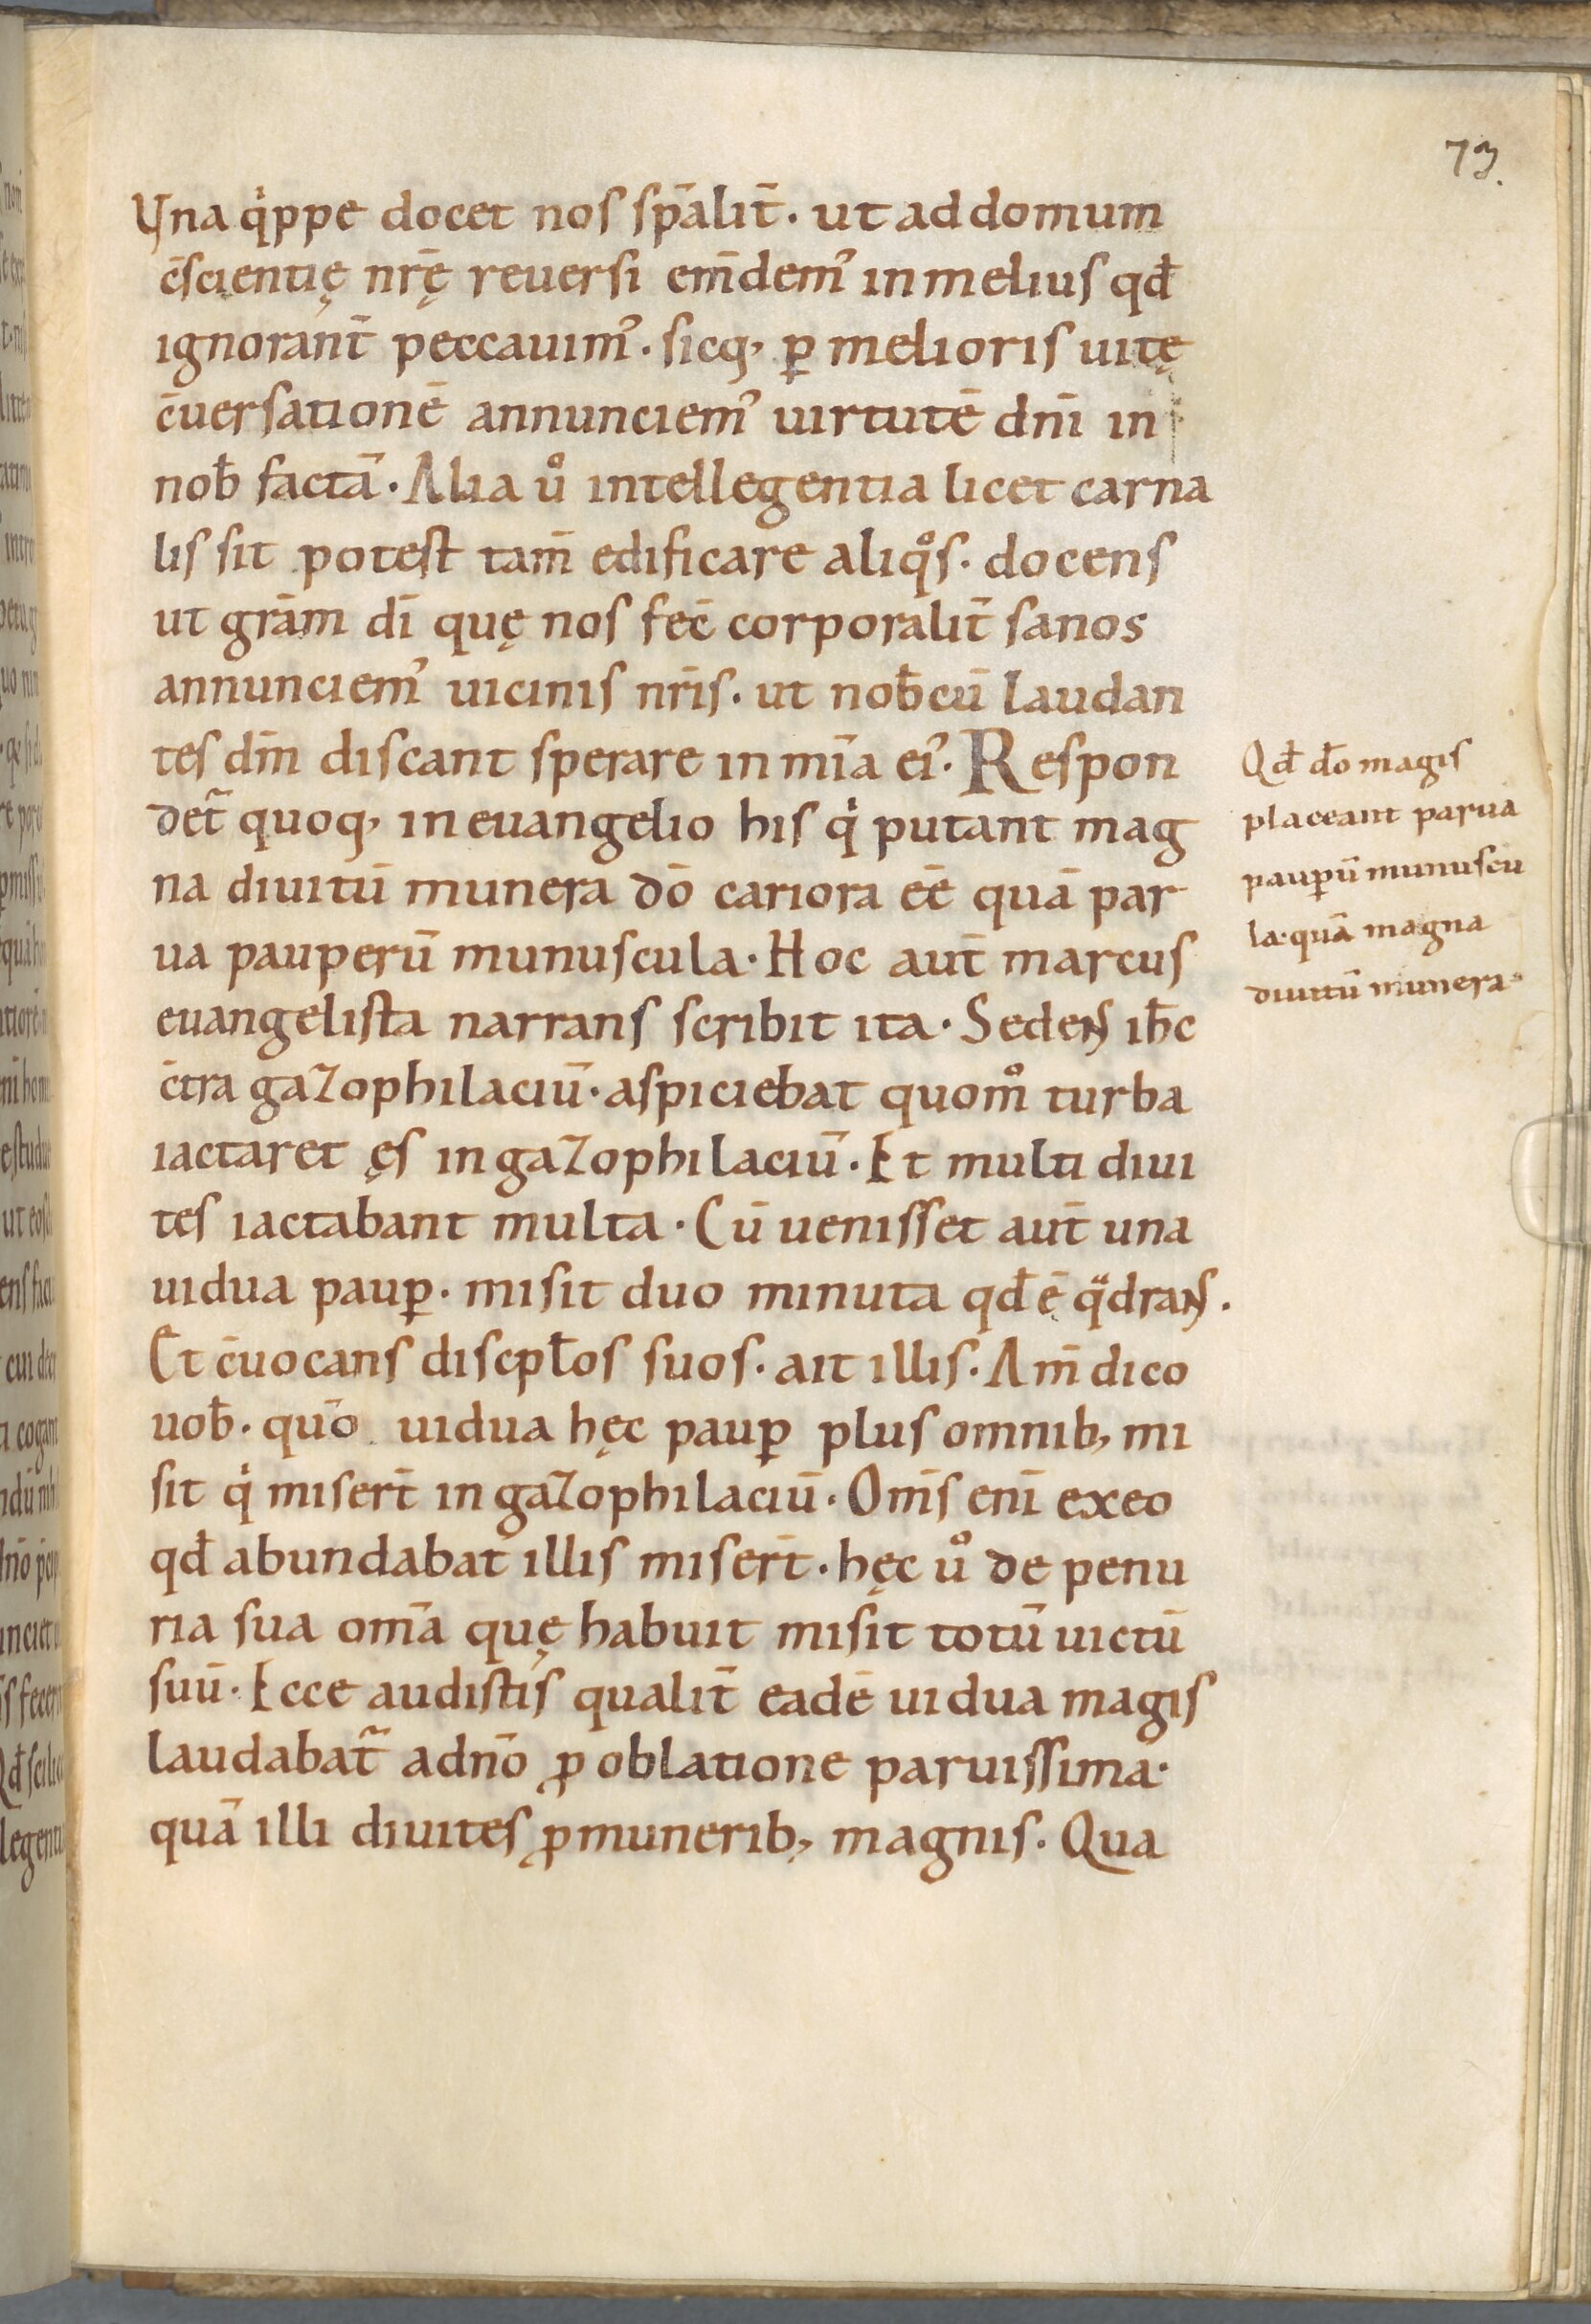 73.
Una q̇ppe docet nos sp̄alit̄. ut ad domum
c̄scientię nr̄ę reuersi em̄dem᾽ in melius qđ
ignorant̄ peccauim᾽. sicq, ꝑ melioris uitę
c̄uersationē annunciem᾽ uirtutē dnī in
nob̄ factā. Alia ůo intellegentia licet carna
lis sit potest tam̄ edificare aliqͦs. docens
ut grām dī quę nos fec̄ corporalit̄ sanos
annunciem᾽ uicinis nr̄is. ut nob̄cū laudan
tes dm̄ discant sperare in mīa ei᾽. Respon
det᷑ quoq, in euangelio his q̇ putant mag
na diuitū munera dō cariora eē quā par
ua pauperū munuscula. Hoc aut̄ marcus
euangelista narrans scribit ita. Sedens ih̄c
c̄tra gazophilaciū. aspiciebat quomͦ turba
iactaret ęs in gazophilaciū. Et multi diui
tes iactabant multa. Cū uenisset aut̄ una
uidua pauꝑ. misit duo minuta qđ ē qᷓdrans.
Et c̄uocans discpl̄os suos. ait illis. Am̄ dico
uob̄. quō uidua hęc pauꝑ plus omnib, mi
sit q̇ miser̄t in gazophilaciū. Om̄s enī ex eo
qđ abundabat illis miser̄t. hęc uͦ de penu
ria sua om̄a quę habuit misit totū uictū
suū. Ecce audistis qualit̄ eadē uidua magis
laudabat᷑ a dnō ꝓ oblatione paruissima.
quā illi diuites ꝓ munerib, magnis. Qua
Qđ dō magis
placeant parua
pauꝑū munuscu
la. quā magna
diuitū munera.